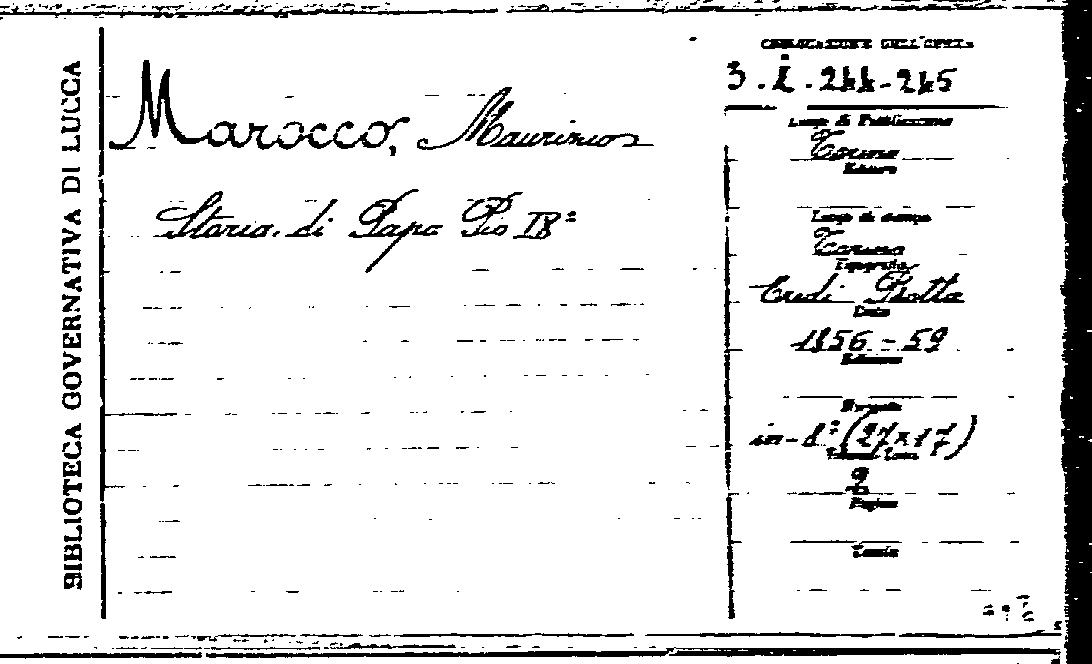 BIBLIOTECA GOVERNATIVA DI LUCCA
Marocco, Maurizio
Storia di Papa Pio IX°
COLLOCAZIONE DELL'OPERA
3. i. 244-245
Luogo di Pubblicazione
Torino
Editore
Luogo di stampa
Torino
Tipografia
Eredi Botta
Data
1856-59
Edizione
Formato
in-8° (27x17)
Pagine
Tavole